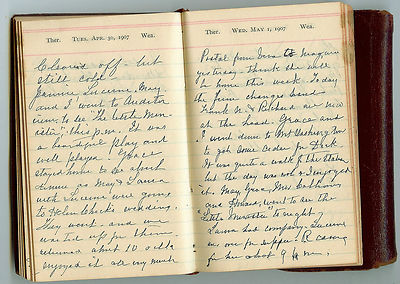 Ther. TUES. APR. 30, 1907 Wea.
Clears off but
still cold.
Jannie Lucene, May
and I went to Audito
rium to see The Little Min
ister, this p.m. It was
a beautiful play and
well played. Grace
stayed home to see about
Annie as May & Laura
with Lucene were going
to Helen Checks wedding.
They went and we
waited up for them
returned about 10 oclk
enjoyed it all very much
Ther. WED. MAY 1, 1907 Wea.
Postal from to
yesterday. thinks she will
be home this week. Today
the firm changes hands
Frank N. & Richard are now
at the head. Grace and
I went down to Mt Washington
to get some Cider for Dick
It was quite a walk f the station
but the day was nice & I enjoyed
it. May, Grace, Mrs.
and went to see the
Little Minister to night.
Laura had company. Lucene
for supper. R came
for her about 9 P.M.